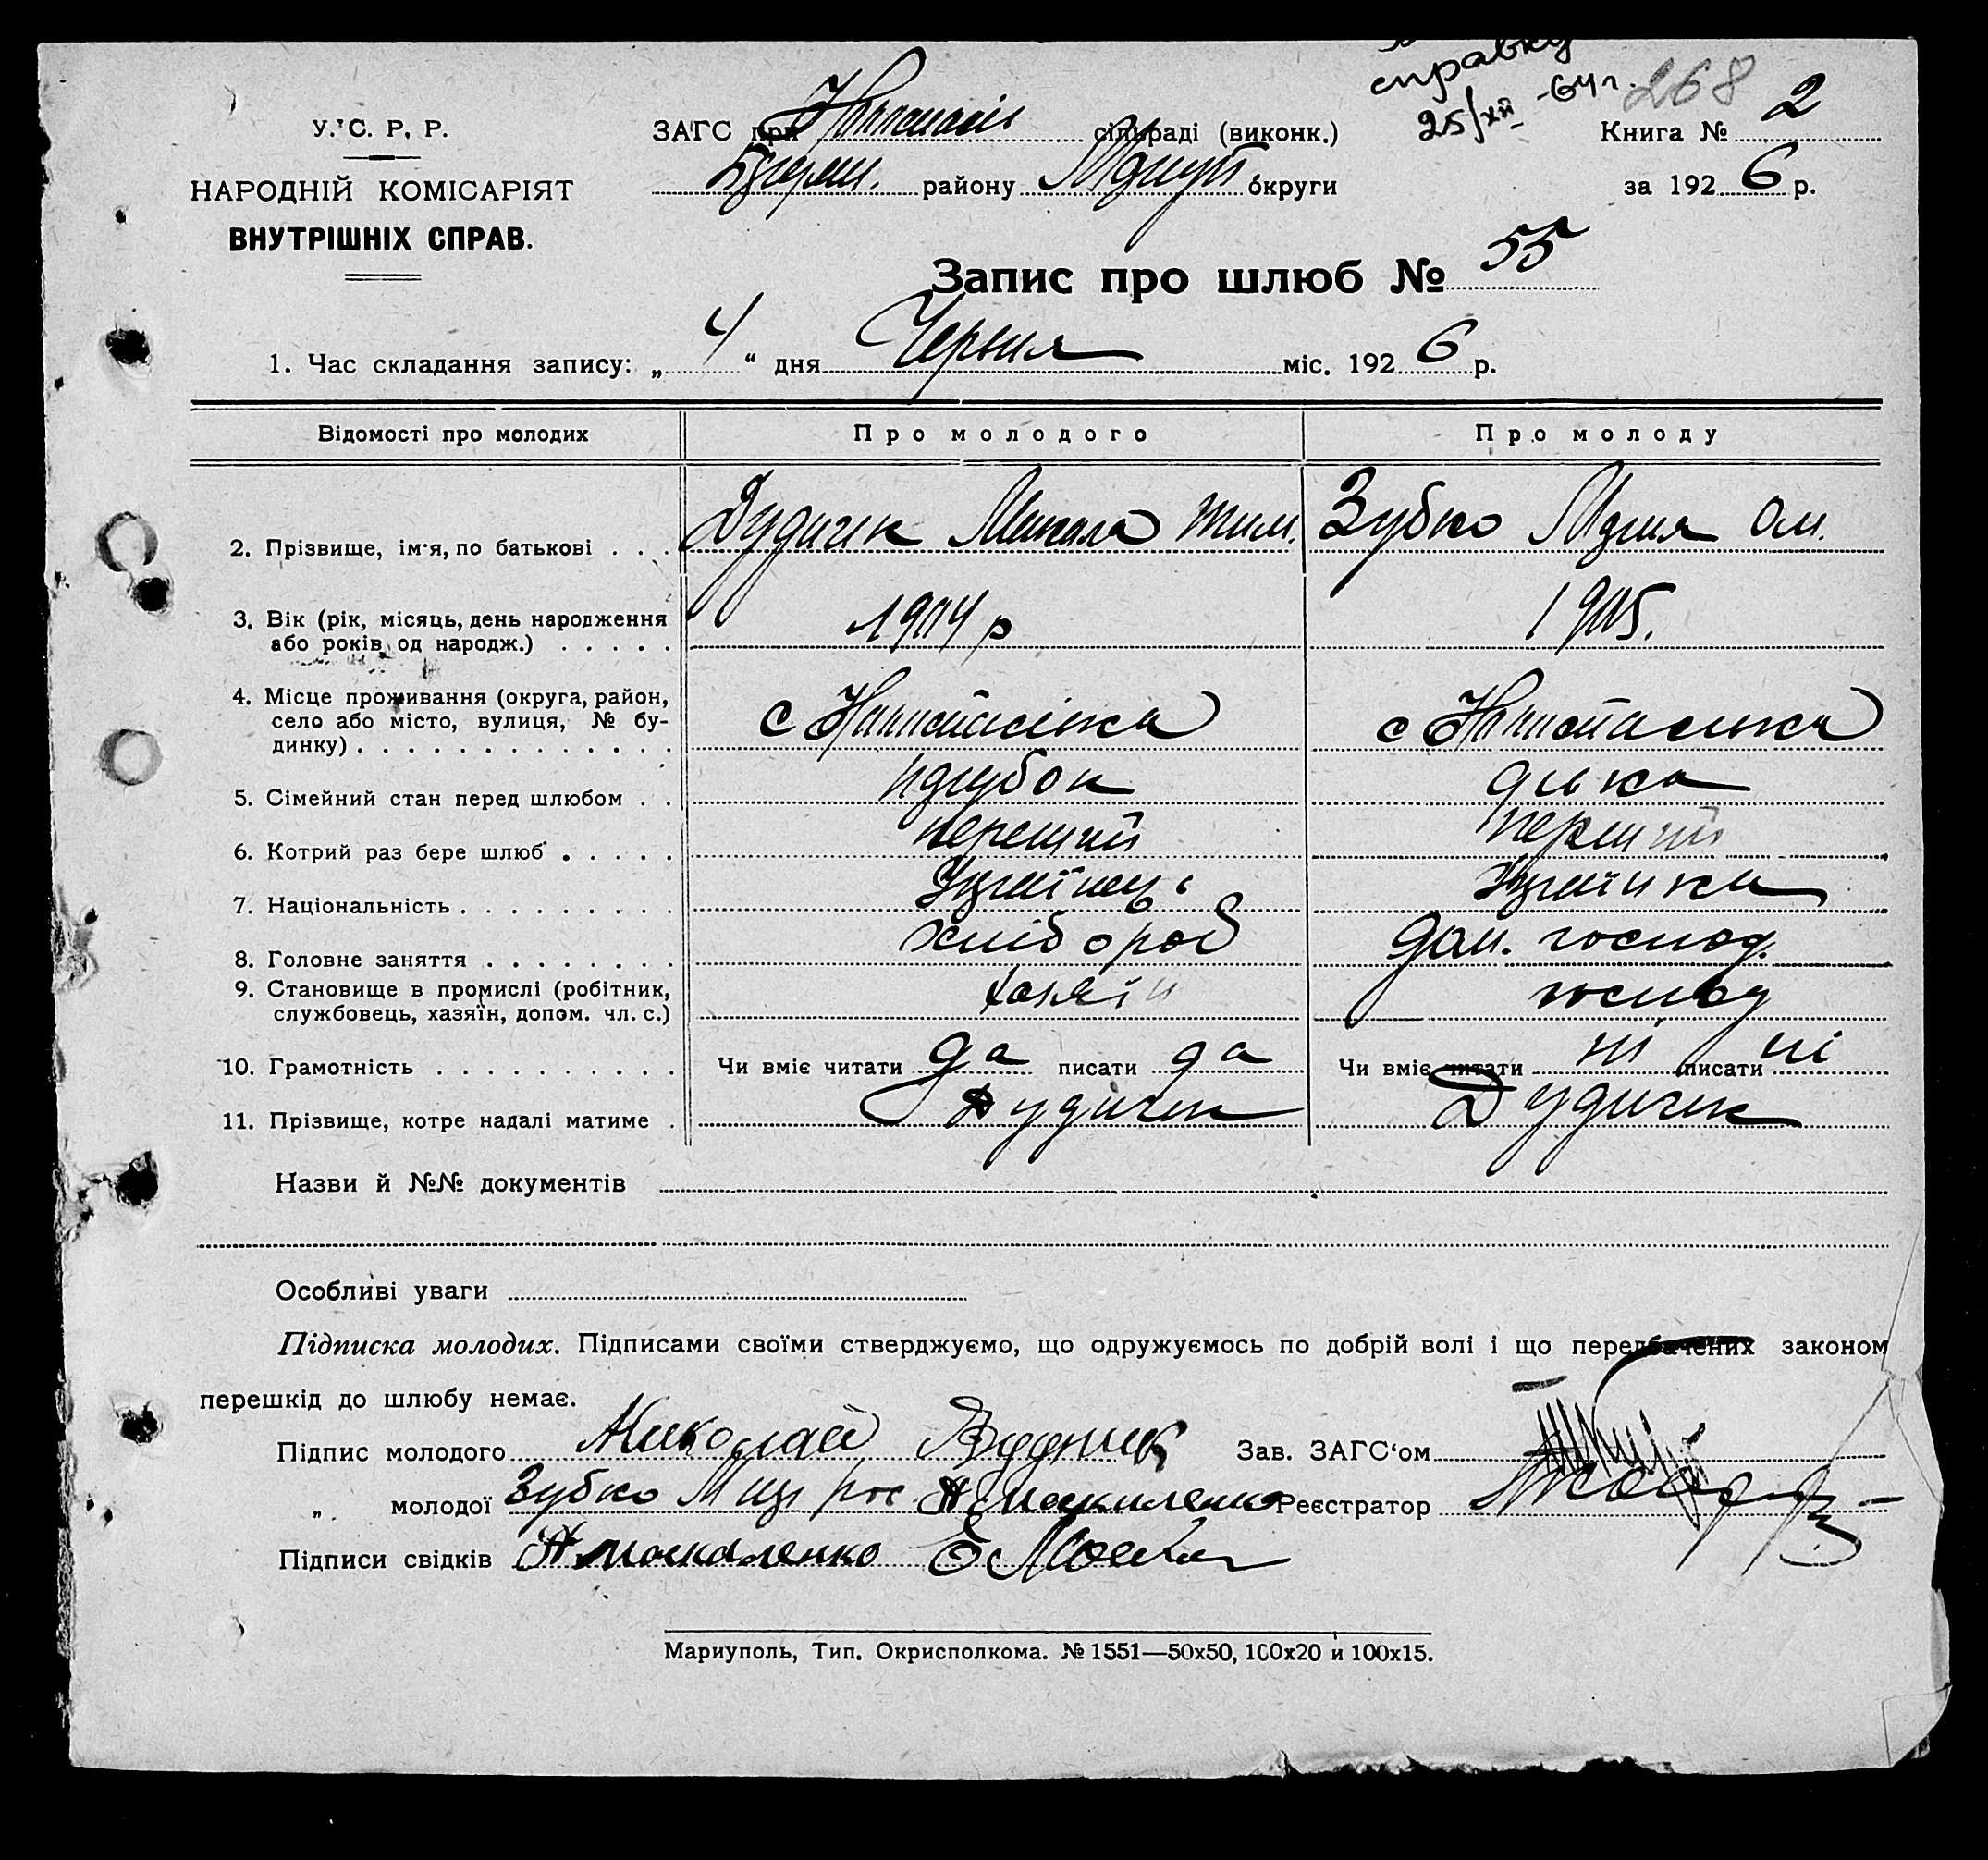 справку
25/XII -64 г. 268
У. С. Р. Р.
НАРОДНІЙ КОМІСАРІЯТ
ВНУТРІШНІХ СПРАВ.
ЗАГС при сільраді (виконк.)
району округи
Книга № 2
за 192 6 р.
Запис про шлюб № 55
1. Час складання запису: „ 4 “ дня Червня міс. 192 6 р.
Відомості про молодих Про молодого Про молоду
2. Прізвище, ім'я, по батькові . . . Дудник Микола Тим. Зубко Мария Ом.
3. Вік (рік, місяць, день народження
або років од народж.) . . . . . 1904 р 1905.
4. Місце проживання (округа, район,
село або місто, вулиця, № бу-
динку) . . . . . . . . . . . . . . с с
5. Сімейний стан перед шлюбом . . парубок дівка
6. Котрий раз бере шлюб . . . . . перший перший
7. Національність . . . . . . . . . Українець Українка
8. Головне заняття . . . . . . . . хлібороб дом. господ.
9. Становище в промислі (робітник,
службовець, хазяїн, допом. чл. с.) хазяїн господ
10. Грамотність . . . . . . . . . . Чи вміє читати да писати да Чи вміє читати ні писати ні
11. Прізвище, котре надалі матиме . Дудник Дудник
Назви й №№ документів
Особливі уваги
Підписка молодих. Підписами своїми стверджуємо, що одружуємось по добрій волі і що передбачених законом
перешкід до шлюбу немає.
Підпис молодого Николай Дудник Зав. ЗАГС‘ом
„ молодої Зубко Реєстратор
Підписи свідків А Москаленко
Мариуполь, Тип. Окрисполкома. № 1551—50х50, 100х20 и 100х15.